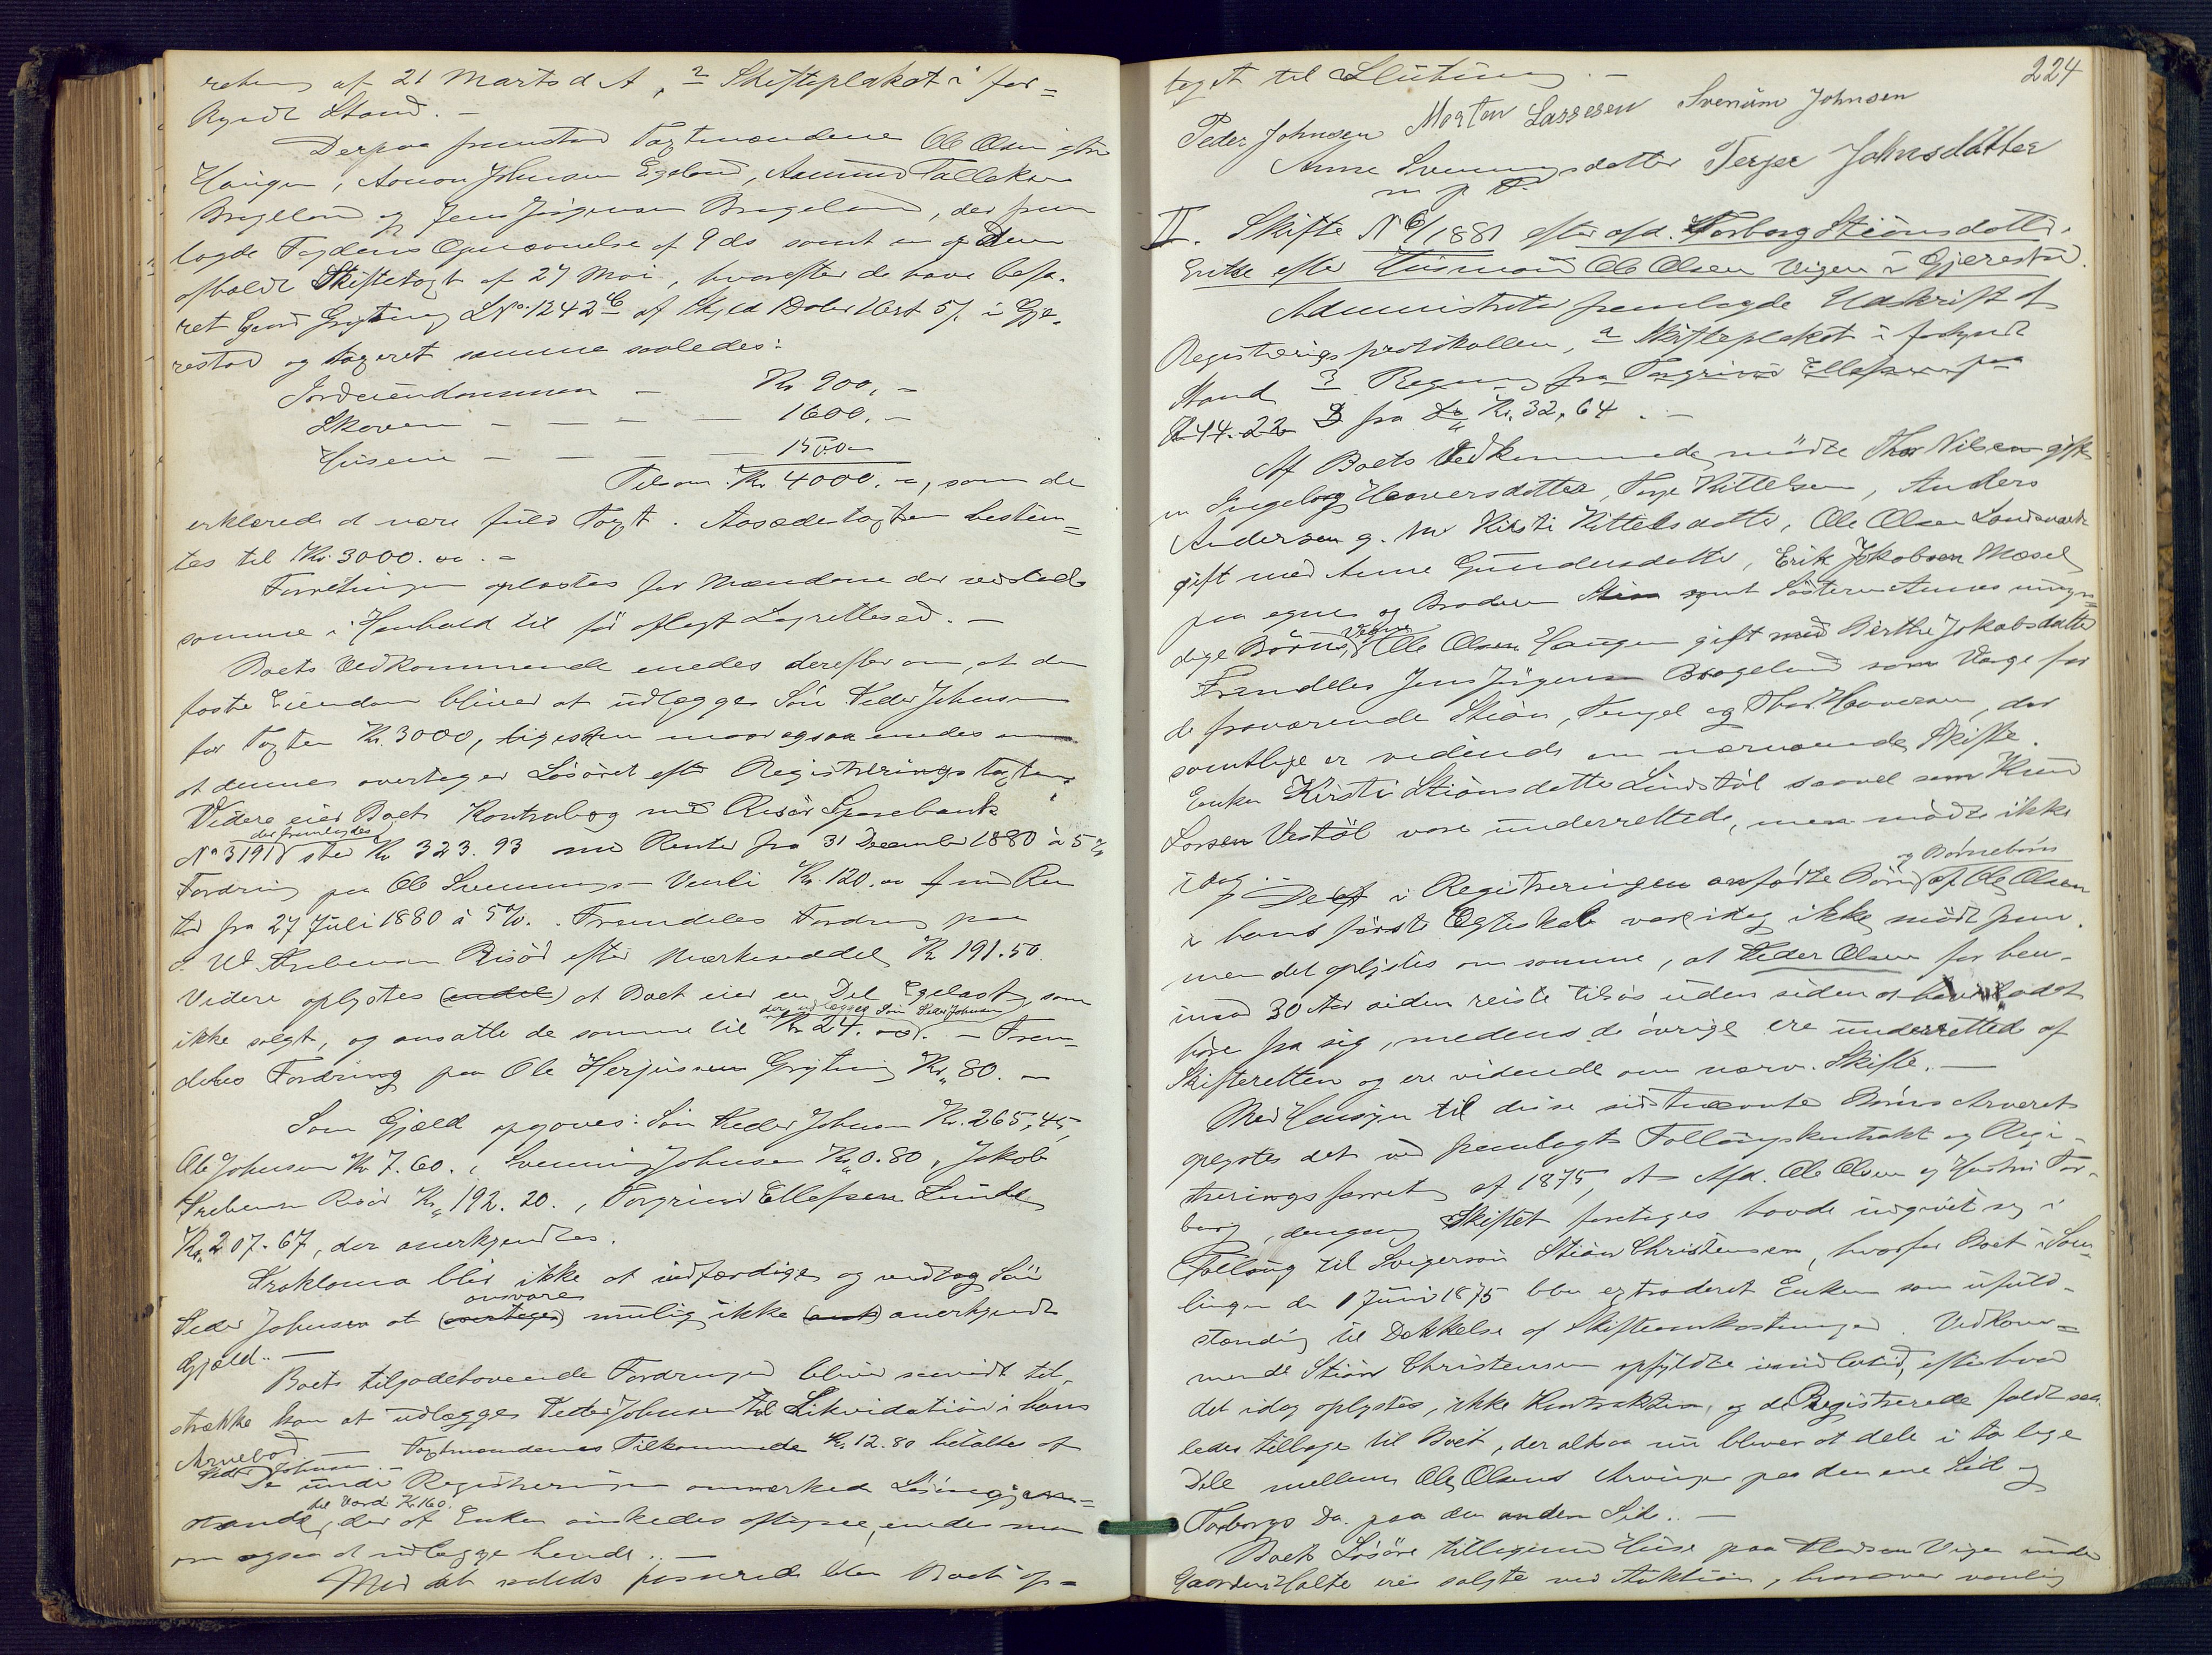 af 21 Marts d A, 2 Skifteplakat i for=
kyndt Stand. –
Derpaa fremstod Taxtmændene Ole Olsen
Haugen, Aanon Johnsen Egeland, Aamund Tallaksen
Brageland og Jens Jørgensen Brageland, der frem
lagde Fogdens Opnævnelse af 9 ds samt en af dem
afholdt Skiftetaxt af 27 Mai, hvorefter de have befa-
ret Gaard Gryting L No 1242 af Skyld 1 Daler 1 Ort 5 s. i Gje-
restad og taxeret samme saaledes:
Jordeiendommen – Kr 900, –
Skoven – – – – 1600. –
Husene – – – – 1500
Tilsam. Kr. 4000. –, som de
erklærede at være fuld Taxt. Aasædestaxten bestem=
tes til Kr. 3000. oo. –
Forretningen oplæstes for Mændene der vedstode
samme i Henhold til før aflagt Lagrettesed. –
Boets Vedkommende enedes derefter om, at den
faste Eiendom bliver at udlægges Søn Peder Johnsen
for Taxten Kr. 3000, ligesom man ogsaa enedes om
at dennes overtager Løsøret efter Registreringstaxten.
Videre eier Boet Kontrabog med Risør Sparebank
der fremlagdes
No 3191 stor Kr 323. 93 med Renter fra 31 December 1880 à 5 %
Fordring paa Ole Svennungs. Kr. 120. oo med Ren
ter fra 27 Juli 1880 à 5 %. Fremdeles Fordring paa
Risør efter Mærkeseddel Kr 191. 50.
Videre oplystes (endel) at Boet eier en Del Egelast, som
der udlægges Søn Peder Johnsen
ikke solgt, og ansatte de samme til Kr 24. oo. – Frem=
deles Fordring paa Ole Herjusen Gryting Kr. 80. –
Som Gjæld opgaves: Søn Peder Johnsen Kr. 265, 45,
Ole Johnsen Kr 7. 60., Svenning Johnsen Kr. 0. 80, Jakob
Risør Kr. 192. 20., Torgrim Ellefsen Lunde
Kr. 207. 67, der anerkjendtes.
Proklama blir ikke at udfærdige og vedtog Søn
ansvare
Peder Johnsen at (overtage) mulig ikke anerkjendt
Gjæld. –
Boets tilgodehavende Fordringer bliver saavidt til-
strække kan at udlægges Peder Johnsen til Likvidation i hans
Arvelod. – Taxtmændenes Tilkommende Kr. 12. 80 betaltes af
Peder Johnsen. –
De under Registreringen anmærkede Løsøregjen=
til Værdi Kr 160.
stande, der af Enken ønskedes, enedes man
om ogsaa at udlægge hende. –
Med det saaledes passerede blev Boet op=
224
taget til Slutning. –
Peder Johnsen Morten Larssen Svenum Johnsen
Anne Svenningsdatter Terje Johnsdatter
m p P.
II. Skifte No 6/1881 efter afd. Torborg Stiansdatter.
Enke efter Husmand Ole Olsen Vigen i Gjerestad.
Administrator fremlagde Udskrift af
Registreringsprotokollen, 2 Skifteplakat i forkyndt
Stand 3 Regning fra Torgrim Ellefsen paa
Kr 44. 22 3 fra Do Kr. 32, 64. –
Af Boets Vedkommende mødte Thor Nilsen gift
m Ingeborg Haaversdatter, Terje Kittelsen, Anders
Andersen g. m Kirsti Kittelsdatter, Ole Olsen
gift med Anne Gundersdatter, Erik Jakobsen Mæsel
paa egne og Broderen Stian samt Søsteren Annes umyn=
Vegne
dige Børns, Ole Olsen Haugen gift med Birthe Jakobsdatter
Fremdeles Jens Jørgensen Brageland som Værge for
de fraværende Stian, Tengel og Thor Haaversen, der
samtlige er vidende om nærværende Skifte.
Enken Kirsti Stiansdatter Lindstøl saavel som Knud
Larsen Vestøl vare underrettede, men mødte ikke
idag. –
og Børnebørn
De i Registreringen anførte Børn af Ole Olsen
i hans første Ægteskab vare idag ikke mødt frem.
men det oplystes om samme, at Peder Olsen for hen-
imod 30 Aar siden reiste tilsøs uden siden at have ladet
høre fra sig, medens de øvrige ere underrettede af
Skifteretten og ere vidende om nærv. Skifte. –
Med Hensyn til disse sidstnævnte Børns Arveret
oplystes det ved fremlagt Føllougskontrakt og Regi-
streringsforretn. af 1875, at Afd. Ole Olsen og Hustru Tor-
borg, dengang Skiftet foretoges havde indgivet sig i
Føllaug til Svigersøn Stian Christensen, hvorfor Boet i Sam=
lingen den 1 Juni 1875 blev extraderet Enken som ufuld-
stændig til Dækkelse af Skifteomkostninger. Vedkom=
mende Stian Christensen opfyldte imidlertid, efter hvad
det idag oplystes, ikke Kontrakten, og det Registrerede faldt saa-
ledes tilbage til Boet, der altsaa nu bliver at dele i to lige
Dele mellem Ole Olsens Arvinger paa den ene Side og
Torborgs Do. paa den anden Side. –
Boets Løsøre tilligemed Huse paa Pladsen Vigen under
Gaarden Holte ere solgte ved Auktion, hvorover vanlig